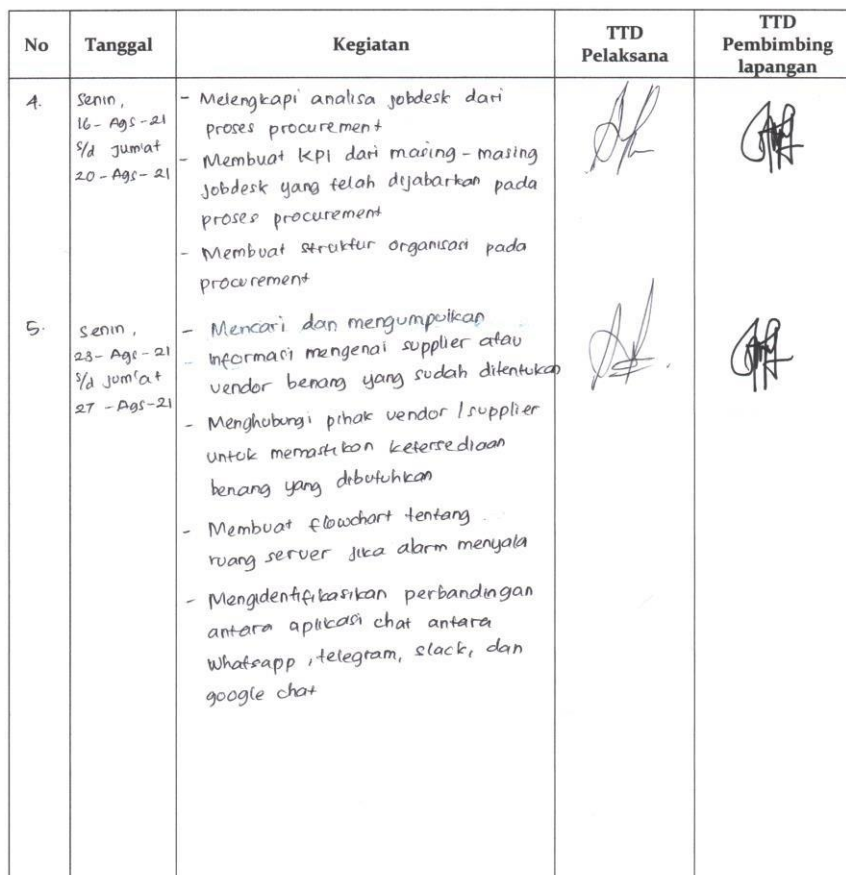 No
Tanggal
Kegiatan
TTD
Pelaksana
TTD
Pembimbing
lapangan
4.
Senin,
16 - Ags - 21
s/d Jum'at
20 - Ags - 21
- Melengkapi analisa jobdesk dari
proses procurement
- Membuat KPI dari masing - masing
jobdesk yang telah dijabarkan pada
proses procurement
- Membuat struktur organisasi pada
procurement
5.
Senin,
23 - Ags - 21
s/d Jum'at
27 - Ags - 21
- Mencari dan mengumpulkan
informasi mengenai supplier atau
vendor benang yang sudah ditentukan
- Menghubungi pihak vendor / supplier
untuk memastikan ketersediaan
benang yang dibutuhkan
- Membuat flowchart tentang
ruang server jika alarm menyala
- Mengidentifikasikan perbandingan
antara aplikasi chat antara
Whatsapp, telegram, slack, dan
google chat